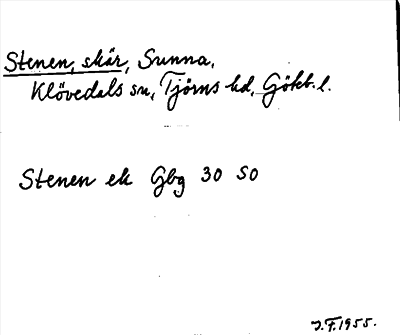 Stenen, skär, Sunna,
Klövedals sn, Tjörns hd, Götb. l.
Stenen ek Gbg 30 SO
J.F. 1955.